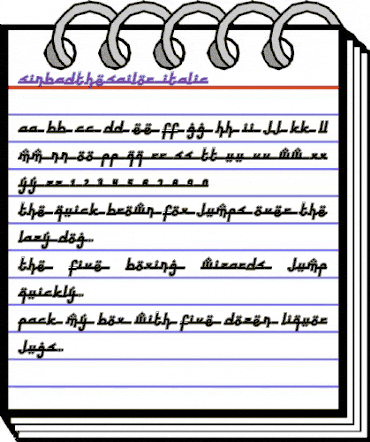 sinbadthësailör italic
aa bb cc dd ëë ff ĝĝ hh ii jj kk ll
m̂m̂ nn öö pp q̈q̈ rr ss tt uu vv ŵŵ xx
ýý zz 1 2 3 4 5 6 7 8 9 0
thë q̈uick bröŵn föx jum̂ps övër thë
lazý döĝ...
thë fivë böxinĝ ŵizards jum̂p
q̈uicklý...
pack m̂ý böx ŵith fivë dözën liq̈uör
juĝs...